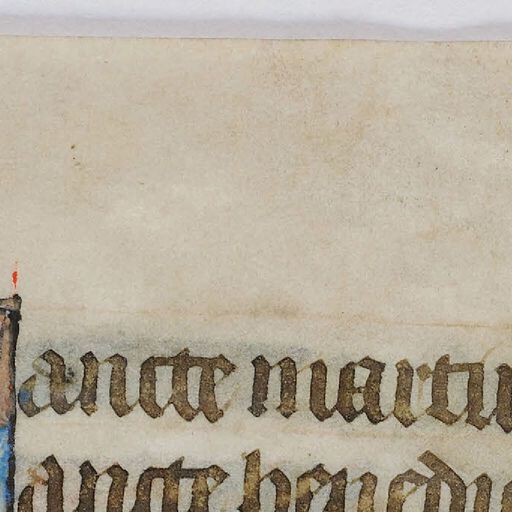 ancte martin
ancte benedic